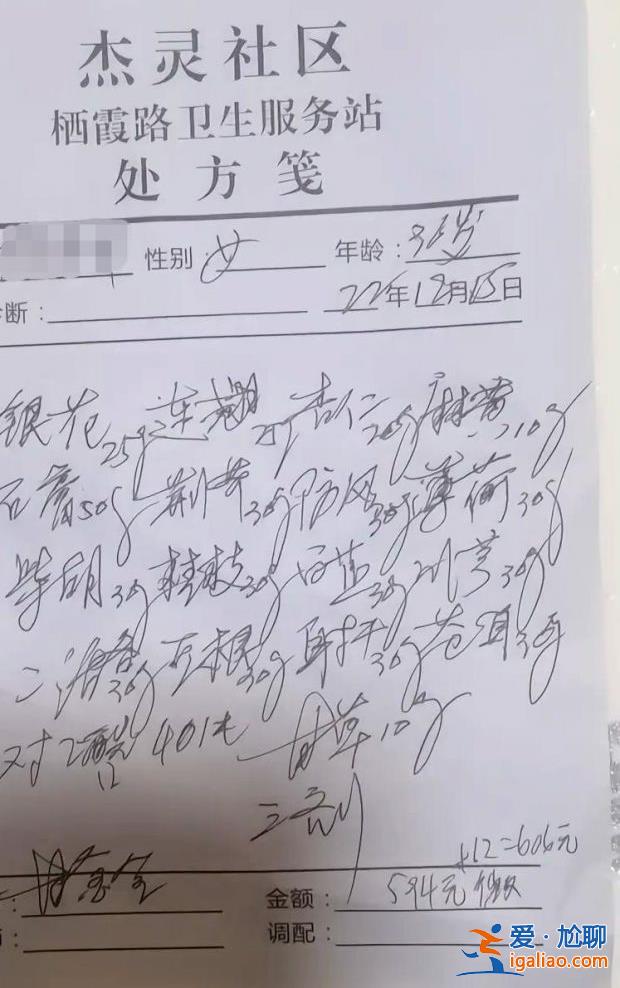 杰灵社区
栖霞路卫生服务站
处方笺
性别:女 年龄:36岁
诊断: 22年12月15日
银花25g 连翘25g 杏仁20g 麻黄10g
石膏50g 荆芥30g 防风30g 薄荷30g
柴胡30g 桂枝30g 白芷30g 川芎30g
30g 豆根30g 射干30g 苍耳30g
对乙酰 40 甘草10g
三剂
+12=606元
金额: 594元
调配:
爱·尬聊
igaliao.com